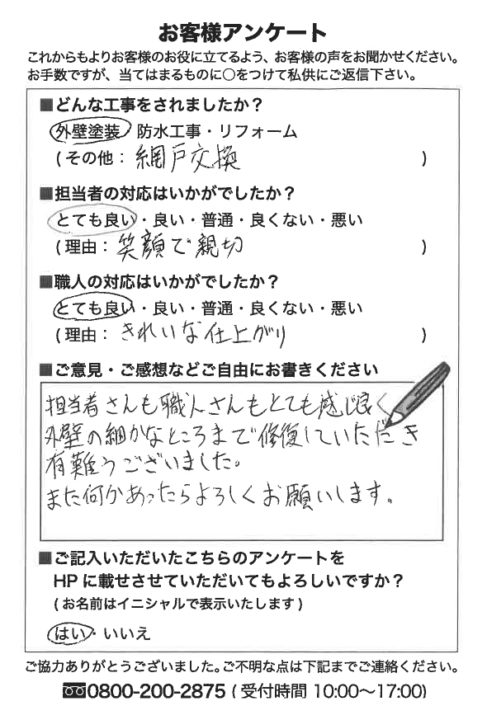 お客様アンケート
これからもよりお客様のお役に立てるよう、お客様の声をお聞かせください。
お手数ですが、当てはまるものに○をつけて私供にご返信下さい。
■どんな工事をされましたか？
外壁塗装・防水工事・リフォーム
(その他：網戸交換)
■担当者の対応はいかがでしたか？
とても良い・良い・普通・良くない・悪い
(理由：笑顔で親切)
■職人の対応はいかがでしたか？
とても良い・良い・普通・良くない・悪い
(理由：きれいな仕上がり)
■ご意見・ご感想などご自由にお書きください
担当者さんも職人さんもとても感じ良く
外壁の細かなところまで修復していただき
有難うございました。
また何かあったらよろしくお願いします。
■ご記入いただいたこちらのアンケートを
HPに載せさせていただいてもよろしいですか？
(お名前はイニシャルで表示いたします)
はい・いいえ
ご協力ありがとうございました。ご不明な点は下記までご連絡ください。
0800-200-2875 (受付時間 10:00〜17:00)